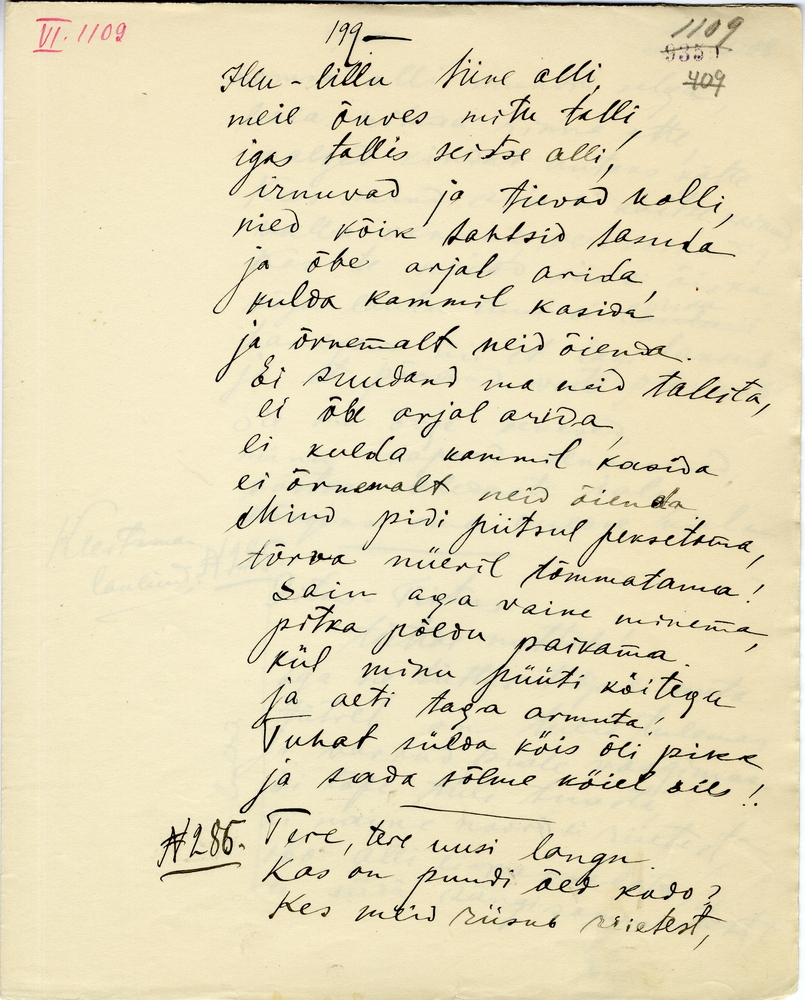 VI. 1109
199
1109
9351
409
Illu-lillu siine alli,
meil õuves mitu talli,
igas tallis seitse alli!
irnuvad ja tievad kolli,
nied kõik tahtsid tasuda
ja õbe arjal arida,
kulda kammil kasida
ja õrnemalt neid õienda.
Ei suudand ma neid tallita,
ei õbe arjal arida,
ei kulda kammil kasida
ei õrnemalt neid õienda.
Mind pidi piitsul peksetama,
tõrva nüeril tõmmatama!
Sain aga vaine minema,
pitka põldu paikama.
Kül minu püüti köitega
ja aeti taga armuta!
Tuhat sülda köis õli pikk
ja sada sõlme köiel sies!!
№286.
Tere, tere uusi langu.
Kas on puudi õed kado?
Kes meid riisub riietest,